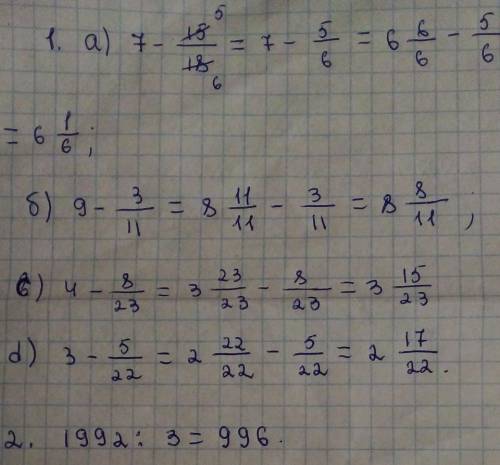 1. а) 7 - 15/18 5/6 = 7 - 5/6 = 6 6/6 - 5/6
= 6 1/6;
б) 9 - 3/11 = 8 11/11 - 3/11 = 8 8/11;
c) 4 - 8/23 = 3 23/23 - 8/23 = 3 15/23
d) 3 - 5/22 = 2 22/22 - 5/22 = 2 17/22.
2. 1992 : 3 = 996.